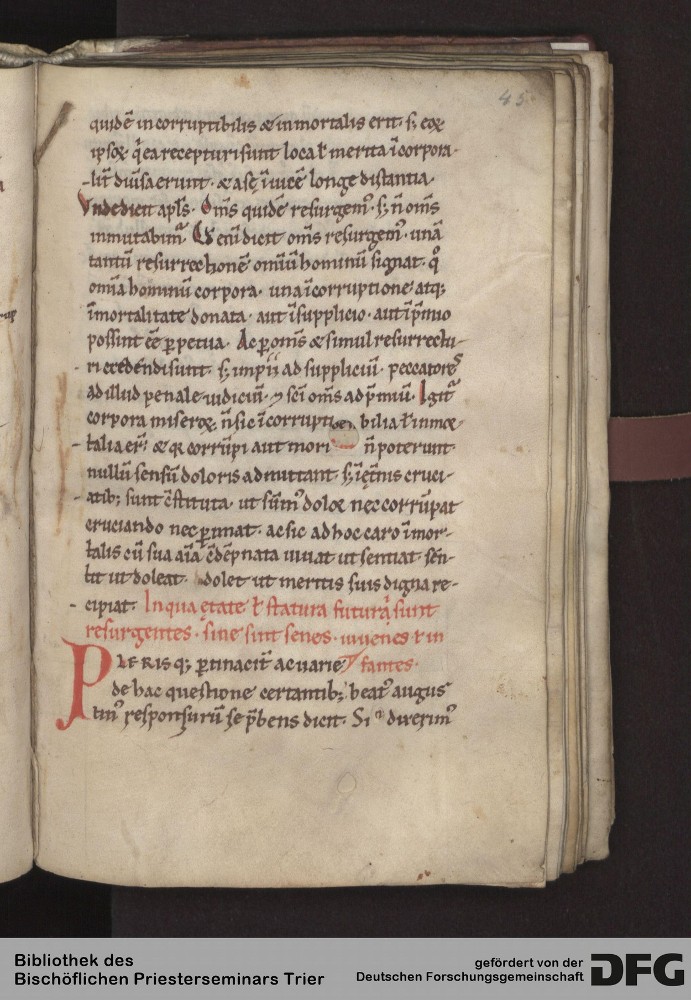 45.
quidē incorruptibilis & inmortalis erit· s; eoꝝ
ipsoꝝ q̄ ea recepturi sunt loca ł merita īcorpora-
lit̄ diuīsa erunt· & a se īuicē longe distantia·
Vnde dicit apl̄s· Om̄s quidē resurgem᾿· s; n̄ om̄s
inmutabim᾿· Cū eni dicit om̄s resurgem᾿· unā
tantū resurrectionē omiū hominū signat· qͦ
omīa hominū corpora· una īcorruptione atq;
īmortalitate donata· aut ī supplicio· aut ī p̄mio
possint eē p̱petua· Ac p̱ om̄s & simul resurrectu-
ri credendi sunt· s; impii ad suppliciū· peccatores
ad illud penale iudiciū· ⁊ sc̄i om̄s ad p̄miū· Igit᾿
corpora miseroꝝ n̄ sic īcorruptibilia ł inmor-
talia er̄· & q̄ corrūpi aut mori n̄ poterunt·
nullū sensū doloris admittant· s; ī ęt̄nis cruci-
atib; sunt c̄stituta· ut sūm᾿ doloꝝ nec corrūpat
cruciando nec p̱imat· ac sic ad hoc caro īmor-
talis cū sua aīa c̄dēpnata uiuat ut sentiat· sēn-
tit ut doleat· dolet ut meritis suis digna re-
cipiat· In qua ętate ł statura futurą sunt
resurgentes· siue sint senes· iuuenes ł in
fantes·
PLERISq; p̱tinacit̄ ac uarie
de hac questione certantib; beat᾿ augus
tin᾿ responsurū se p̄bens dicit· Si dixerim᾿
Bibliothek des
Bischöflichen Priesterseminars Trier
gefördert von der
Deutschen Forschungsgemeinschaft
DFG